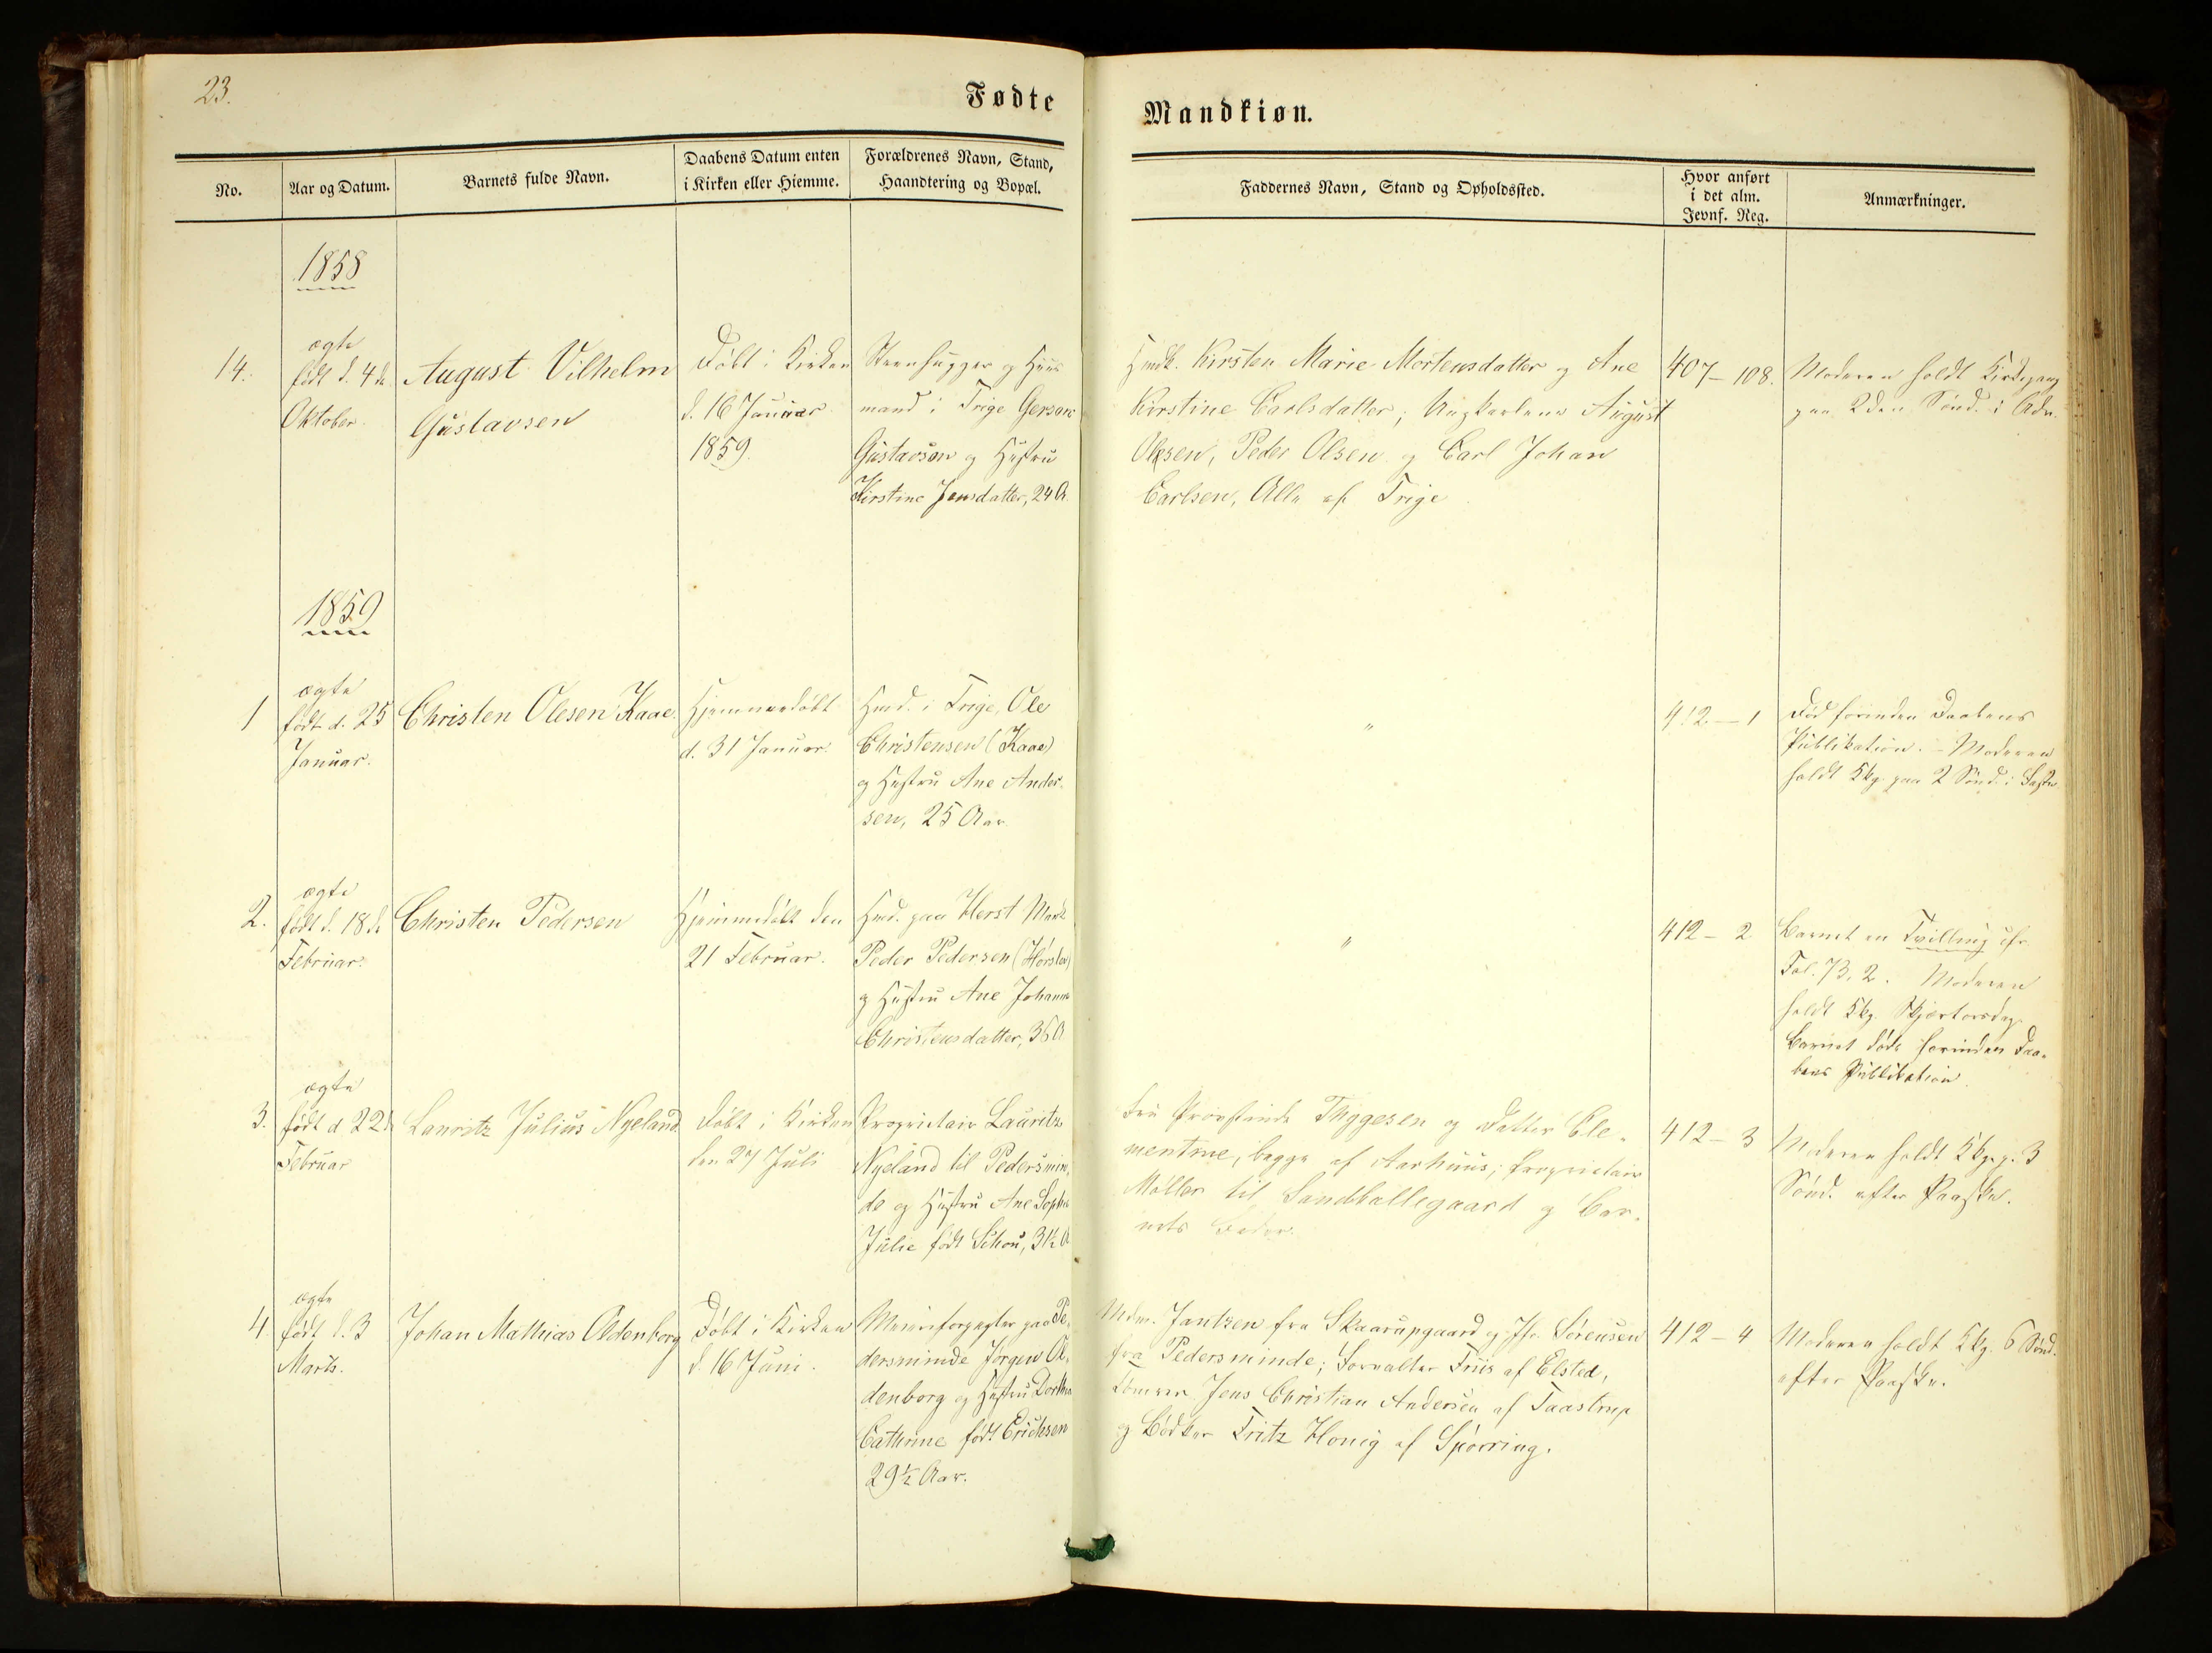 23.
Fødte
Mandkiøn.
No.
Aar og Datum.
Barnets fulde Navn.
Daabens Datum enten
i Kirken eller Hiemme.
Forældrenes Navn, Stand,
Haandtering og Bopæl.
Faddernes Navn, Stand og Opholdssted.
Hvor anført
i det alm.
Jevnf. Reg.
Anmærkninger.
1858
14.
ægte
født d. 4de
Oktober.
August Vilhelm
Gustavsen
Døbt i Kirken
d. 16 Januar
1859.
Steenhugger og Huus
mand i Trige Gerson
Gustavson og Hustru
Kirstine Jensdatter, 24 A.
Hmdk. Kirsten Marie Mortensdatter og Ane
Kirstine Carlsdatter; Ungkarlene August
Olesen, Peder Olsen og Carl Johan
Carlsen, Alle af Trige
407–108.
Moderen holdt Kirkegang
paa 2den Sønd. i Adv.
1859
1
ægte
født d. 25
Januar.
Christen Olesen Kaae.
Hjemmedøbt
d. 31 Januar.
Hmd. i Trige, Ole
Christensen (Kaae)
og Hustru Ane Ander-
sen, 25 Aar
"
412–1
Død forinden Daabens
Publikation. – Moderen
holdt Kkg. paa 2 Sønd. i Faste
2.
ægte
født d. 18de
Februar.
Christen Pedersen
Hjemmedøbt den
21 Februar.
Hmd. paa Herst Mark
Peder Pedersen (Hørslev)
og Hustru Ane Johanne
Christensdatter, 36 A
"
412–2
Barnet en Tvilling cfr.
Fol. 73, 2. Moderen
holdt Kkg. Skjærtorsdag.
Barnet døde forinden Daa-
bens Publikation.
3.
ægte
født d 22d
Februar
Lauritz Julius Nyeland.
Døbt i Kirken
den 27 Juli
Proprietair Lauritz
Nyeland til Pedersmin-
de og Hustru Ane Sophie
Julie født Schou, 31½ A
Fru Provstinde Thygesen og Datter Cle-
mentine, begge af Aarhuus; Proprietair
Møller til Sandballegaard og Bar-
nets Fader.
412–3
Moderen holdt Kkg. p. 3
Sønd. efter Paaske.
4.
ægte
født d. 3
Marts.
Johan Mathias Oldenborg
Døbt i Kirken
d. 16 Juni.
Meieriforpagter paa Pe-
dersminde Jørgen Ol-
denborg og Hustru Dorthea
Cathrine født Erichsen
29½ Aar.
Mdm. Jantzen fra Skaarupgaard og Jfr. Sørensen
fra Pedersminde; Forvalter Friis af Elsted,
Jens Christian Andersen af Taastrup
og Bødker Fritz Honig af Spørring.
412–4
Moderen holdt Kkg. 6 Sønd.
efter Paaske.